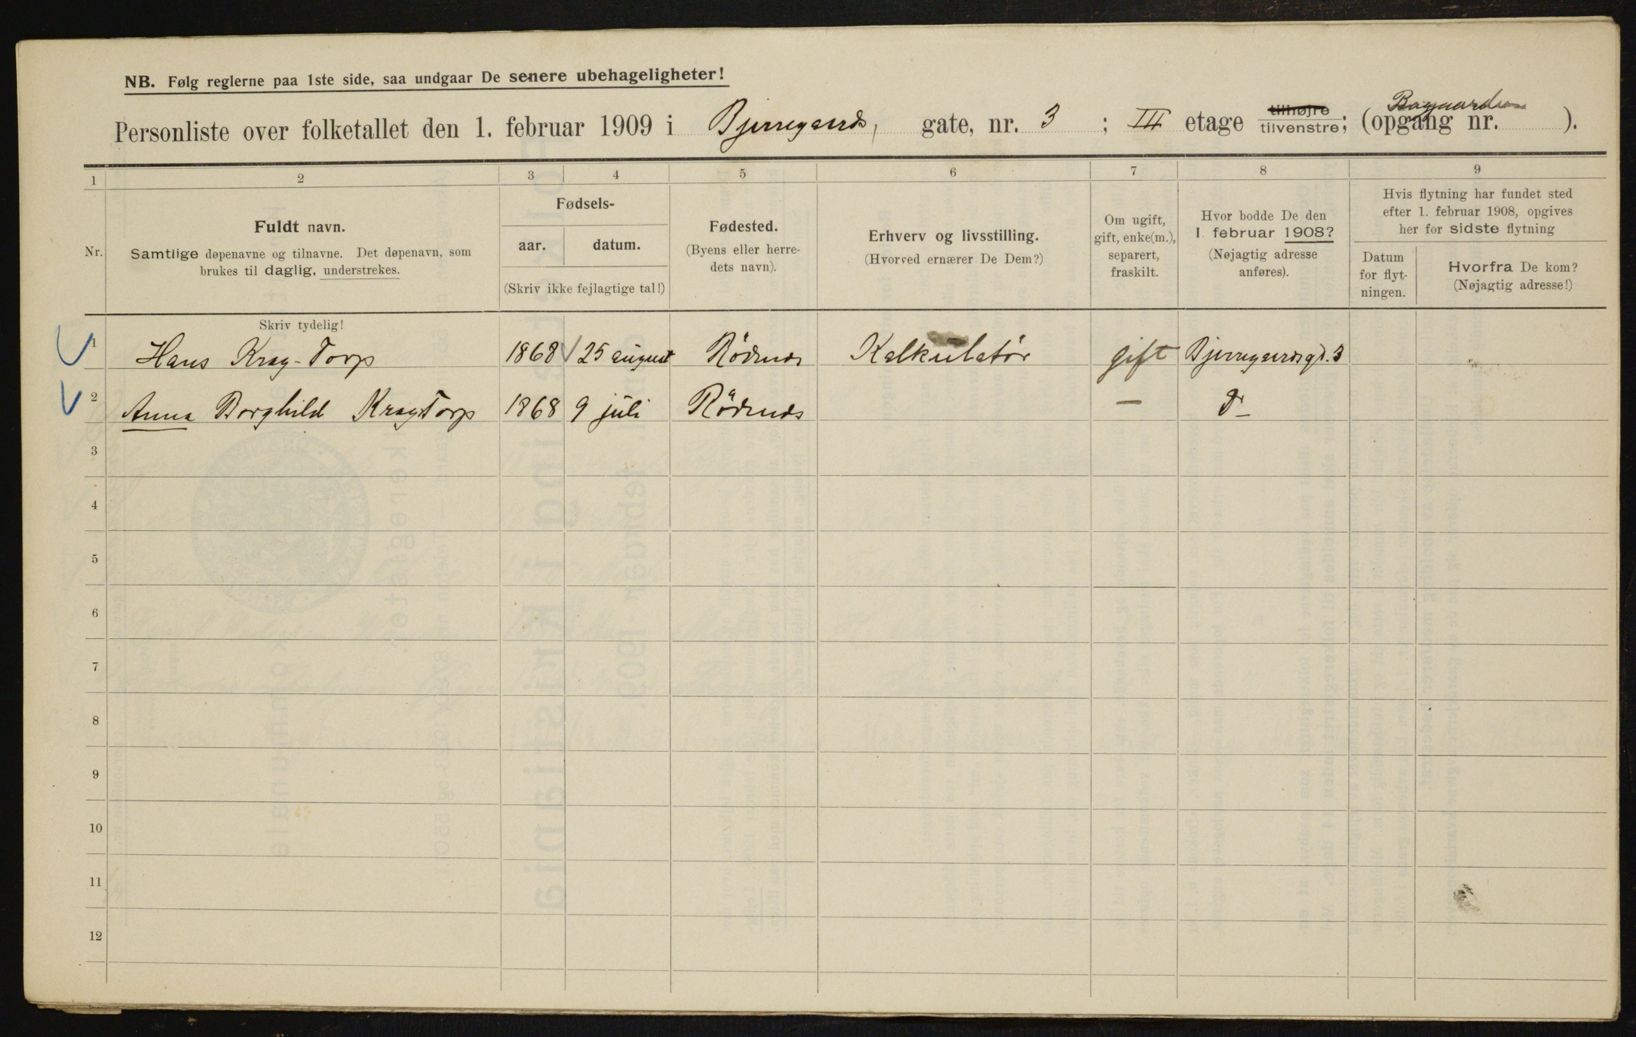 NB. Følg reglerne paa 1ste side, saa undgaar De senere ubehageligheter!
Personliste over folketallet den 1. februar 1909 i Bjerregaards, gate, nr. 3 ; III etage tilhøjre tilvenstre; (opgang nr. Baggaarden ).
1 2 3 4 5 6 7 8 9
Nr. Fuldt navn. Samtlige døpenavne og tilnavne. Det døpenavn, som brukes til daglig, understrekes.
Fødsels- aar. datum. (Skriv ikke fejlagtige tal!)
Fødested. (Byens eller herredets navn).
Erhverv og livsstilling. (Hvorved ernærer De Dem?)
Om ugift, gift, enke(m.), separert, fraskilt.
Hvor bodde De den 1. februar 1908? (Nøjagtig adresse anføres).
Hvis flytning har fundet sted efter 1. februar 1908, opgives her for sidste flytning
Datum for flytningen.
Hvorfra De kom? (Nøjagtig adresse!)
Skriv tydelig!
1 Hans Krag-Torp 1868 25 august Rødenes Kalkulatør gift Bjerregaardsgd. 3
2 Anna Borghild Krag Torp 1868 9 juli Rødenes — Do
3
4
5
6
7
8
9
10
11
12